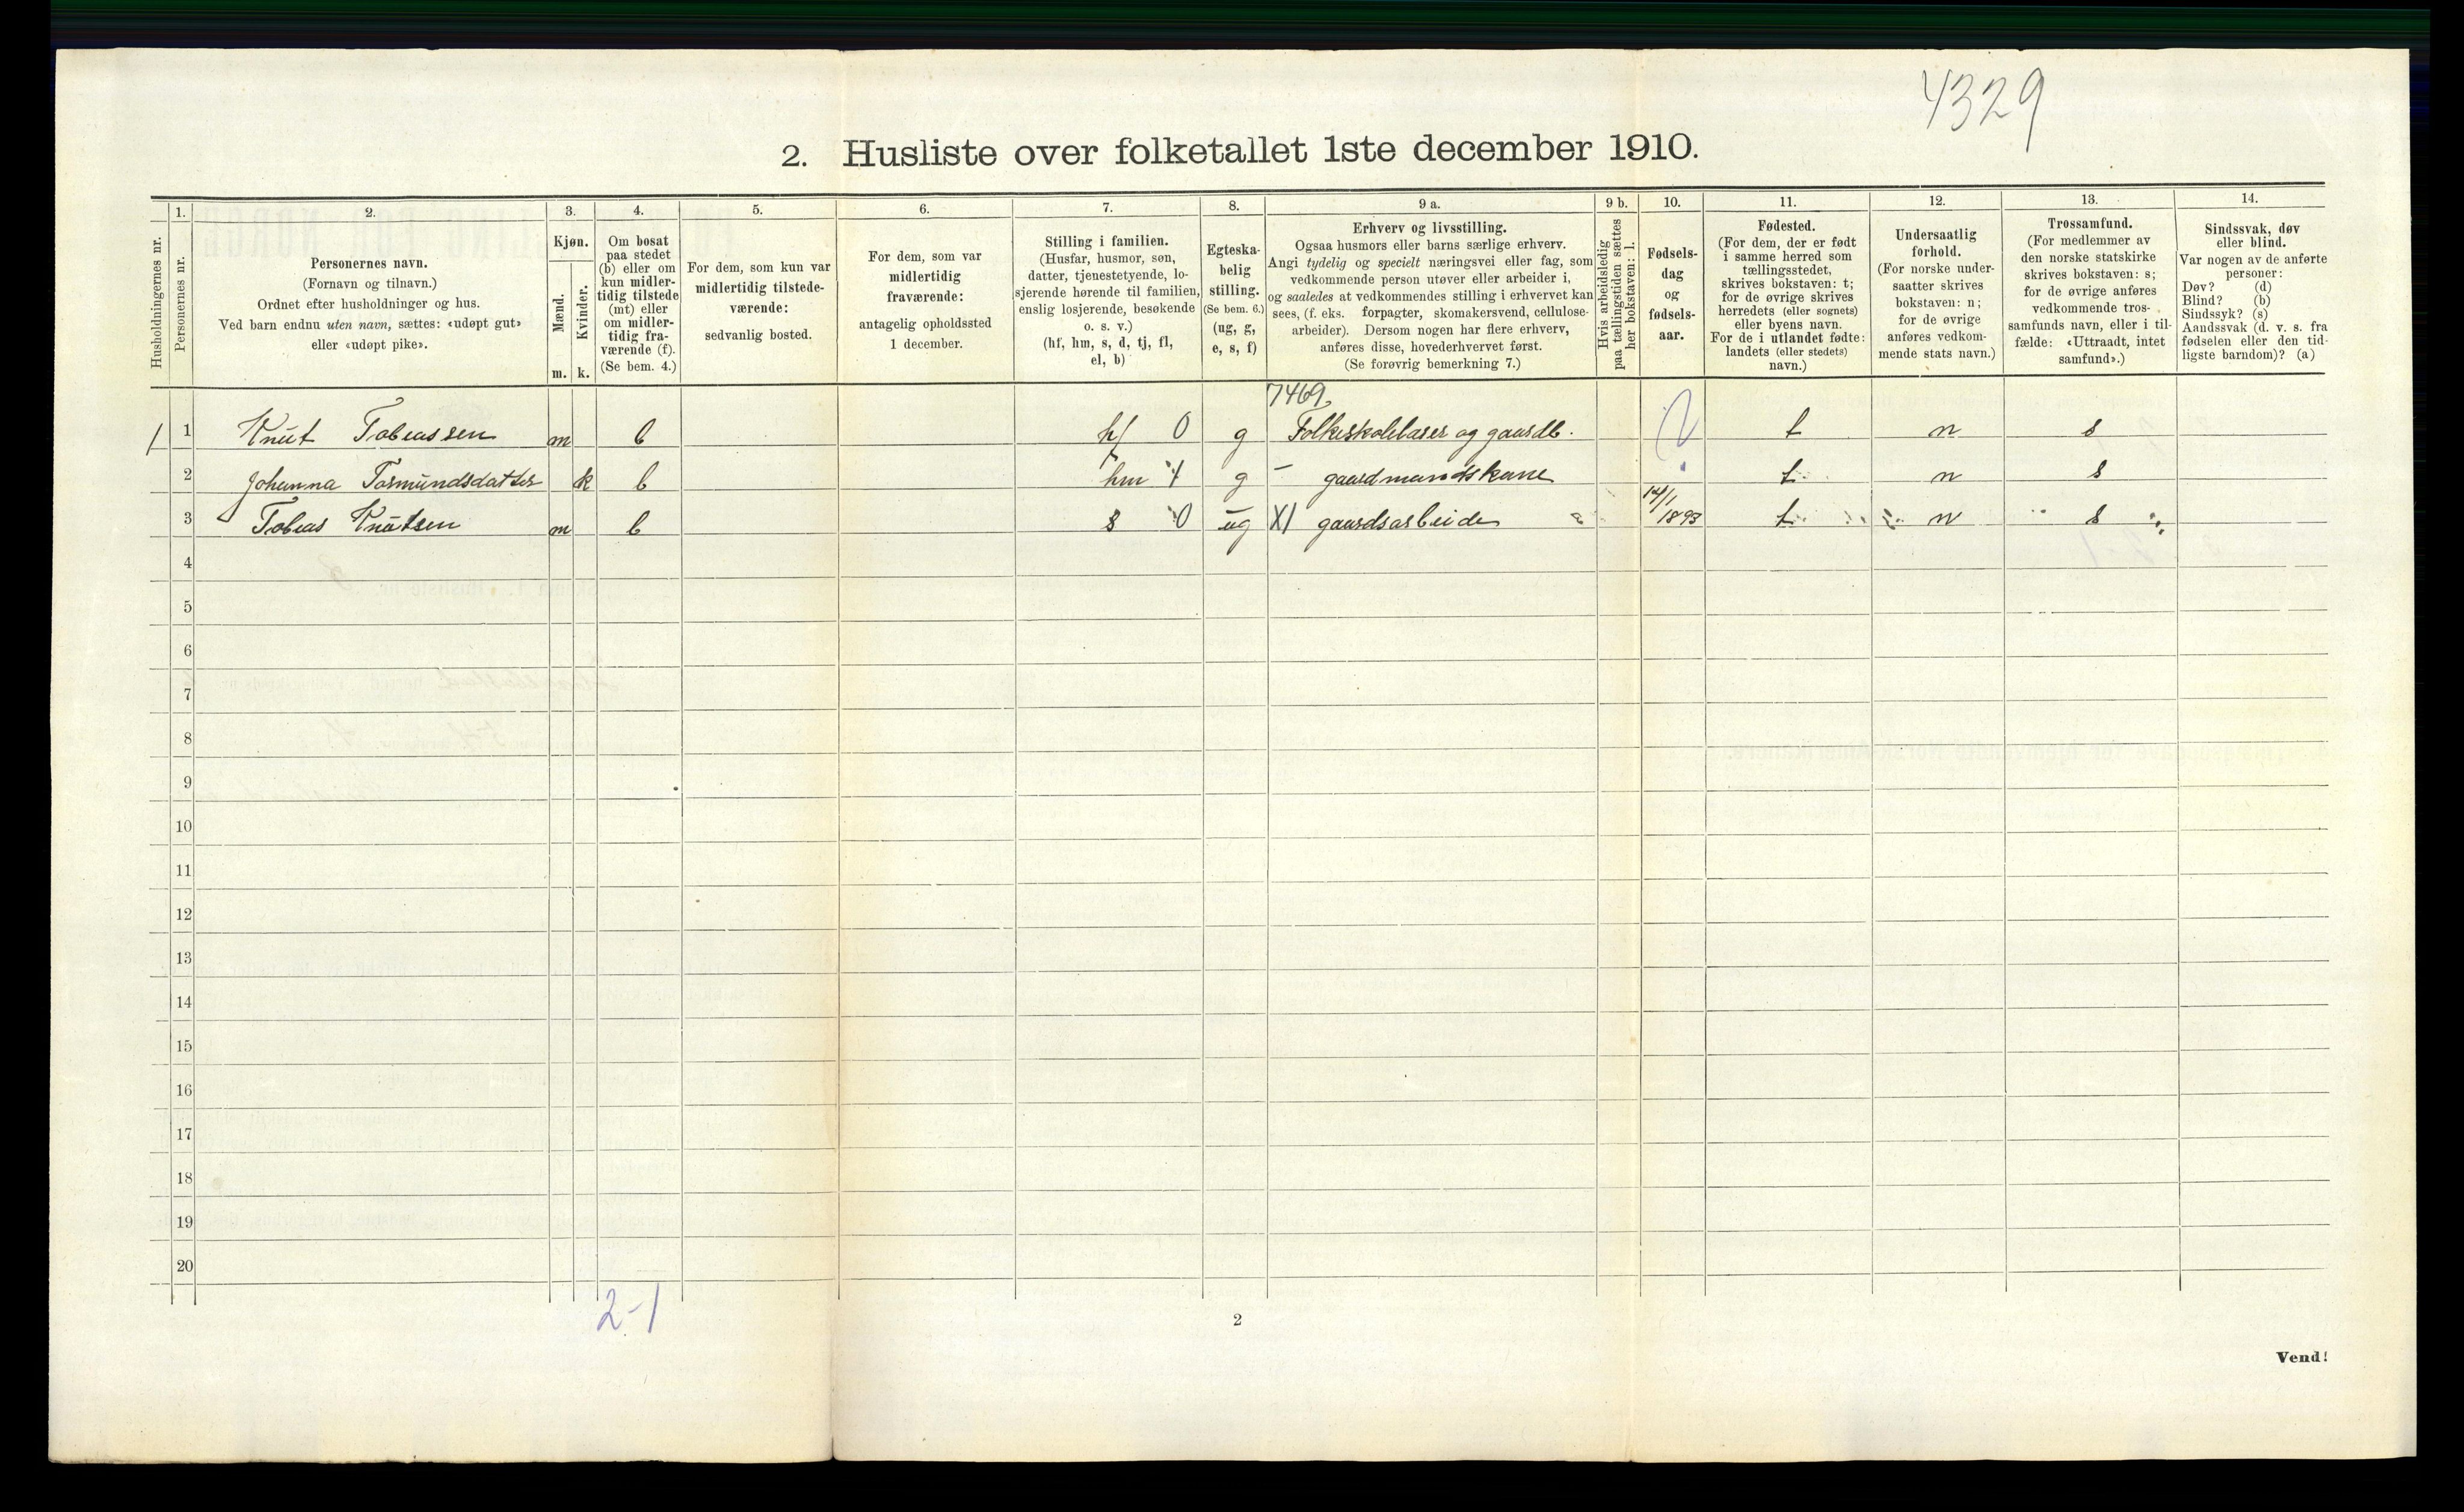 4329
2. Husliste over folketallet 1ste december 1910.
Husholdningernes nr.
1.
Personernes nr.
2.
Personernes navn.
(Fornavn og tilnavn.)
Ordnet efter husholdninger og hus.
Ved barn endnu uten navn, sættes: «udøpt gut»
eller «udøpt pike».
3.
Kjøn.
Mænd.
Kvinder.
m. k.
4.
Om bosat
paa stedet
(b) eller om
kun midler-
tidig tilstede
(mt) eller
om midler-
tidig fra-
værende (f).
(Se bem. 4.)
5.
For dem, som kun var
midlertidig tilstede-
værende:
sedvanlig bosted.
6.
For dem, som var
midlertidig
fraværende:
antagelig opholdssted
1 december.
7.
Stilling i familien.
(Husfar, husmor, søn,
datter, tjenestetyende, lo-
sjerende hørende til familien,
enslig losjerende, besøkende
o. s. v.)
(hf, hm, s, d, tj, fl,
el, b)
8.
Egteska-
belig
stilling.
(Se bem. 6.)
(ug, g,
e, s, f)
9 a.
Erhverv og livsstilling.
Ogsaa husmors eller barns særlige erhverv.
Angi tydelig og specielt næringsvei eller fag, som
vedkommende person utøver eller arbeider i,
og saaledes at vedkommendes stilling i erhvervet kan
sees, (f. eks. forpagter, skomakersvend, cellulose-
arbeider). Dersom nogen har flere erhverv,
anføres disse, hovederhvervet først.
(Se forøvrig bemerkning 7.)
9 b.
Hvis arbeidsledig
paa tællingstiden sættes
her bokstaven: l.
10.
Fødsels-
dag
og
fødsels-
aar.
11.
Fødested.
(For dem, der er født
i samme herred som
tællingsstedet,
skrives bokstaven: t;
for de øvrige skrives
herredets (eller sognets)
eller byens navn.
For de i utlandet fødte:
landets (eller stedets)
navn.)
12.
Undersaatlig
forhold.
(For norske under-
saatter skrives
bokstaven: n;
for de øvrige
anføres vedkom-
mende stats navn.)
13.
Trossamfund.
(For medlemmer av
den norske statskirke
skrives bokstaven: s;
for de øvrige anføres
vedkommende tros-
samfunds navn, eller i til-
fælde: «Uttraadt, intet
samfund».)
14.
Sindssvak, døv
eller blind.
Var nogen av de anførte
personer:
Døv? (d)
Blind? (b)
Sindssyk? (s)
Aandssvak (d. v. s. fra
fødselen eller den tid-
ligste barndom)? (a)
7469
1 1 Knut Tobiassen m b hf 0 g Folkeskolelærer og gaardb. t n s
2 Johanna Tormundsdatter k b hm g - gaardmandskone t n s
3 Tobias Knutsen m b s 0 ug X1 gaardsarbeide 14/1 1893 t n s
4
5
6
7
8
9
10
11
12
13
14
15
16
17
18
19
20
2-1
2
Vend!